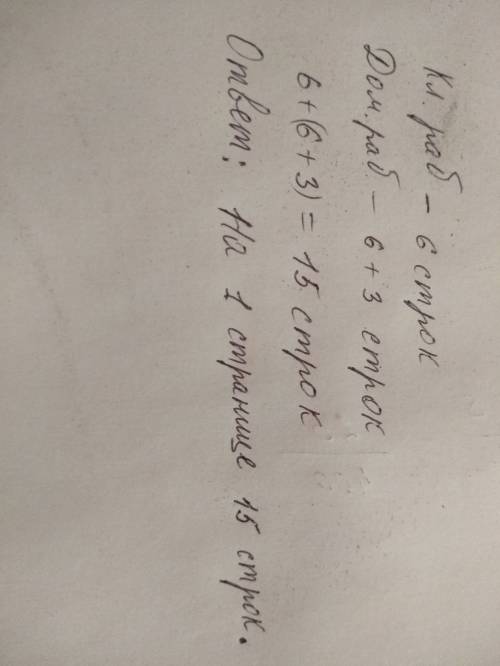 Кл. раб – 6 строк
Дом. раб – 6 + 3 строк
6+(6+3) = 15 строк
Ответ: На 1 странице 15 строк.